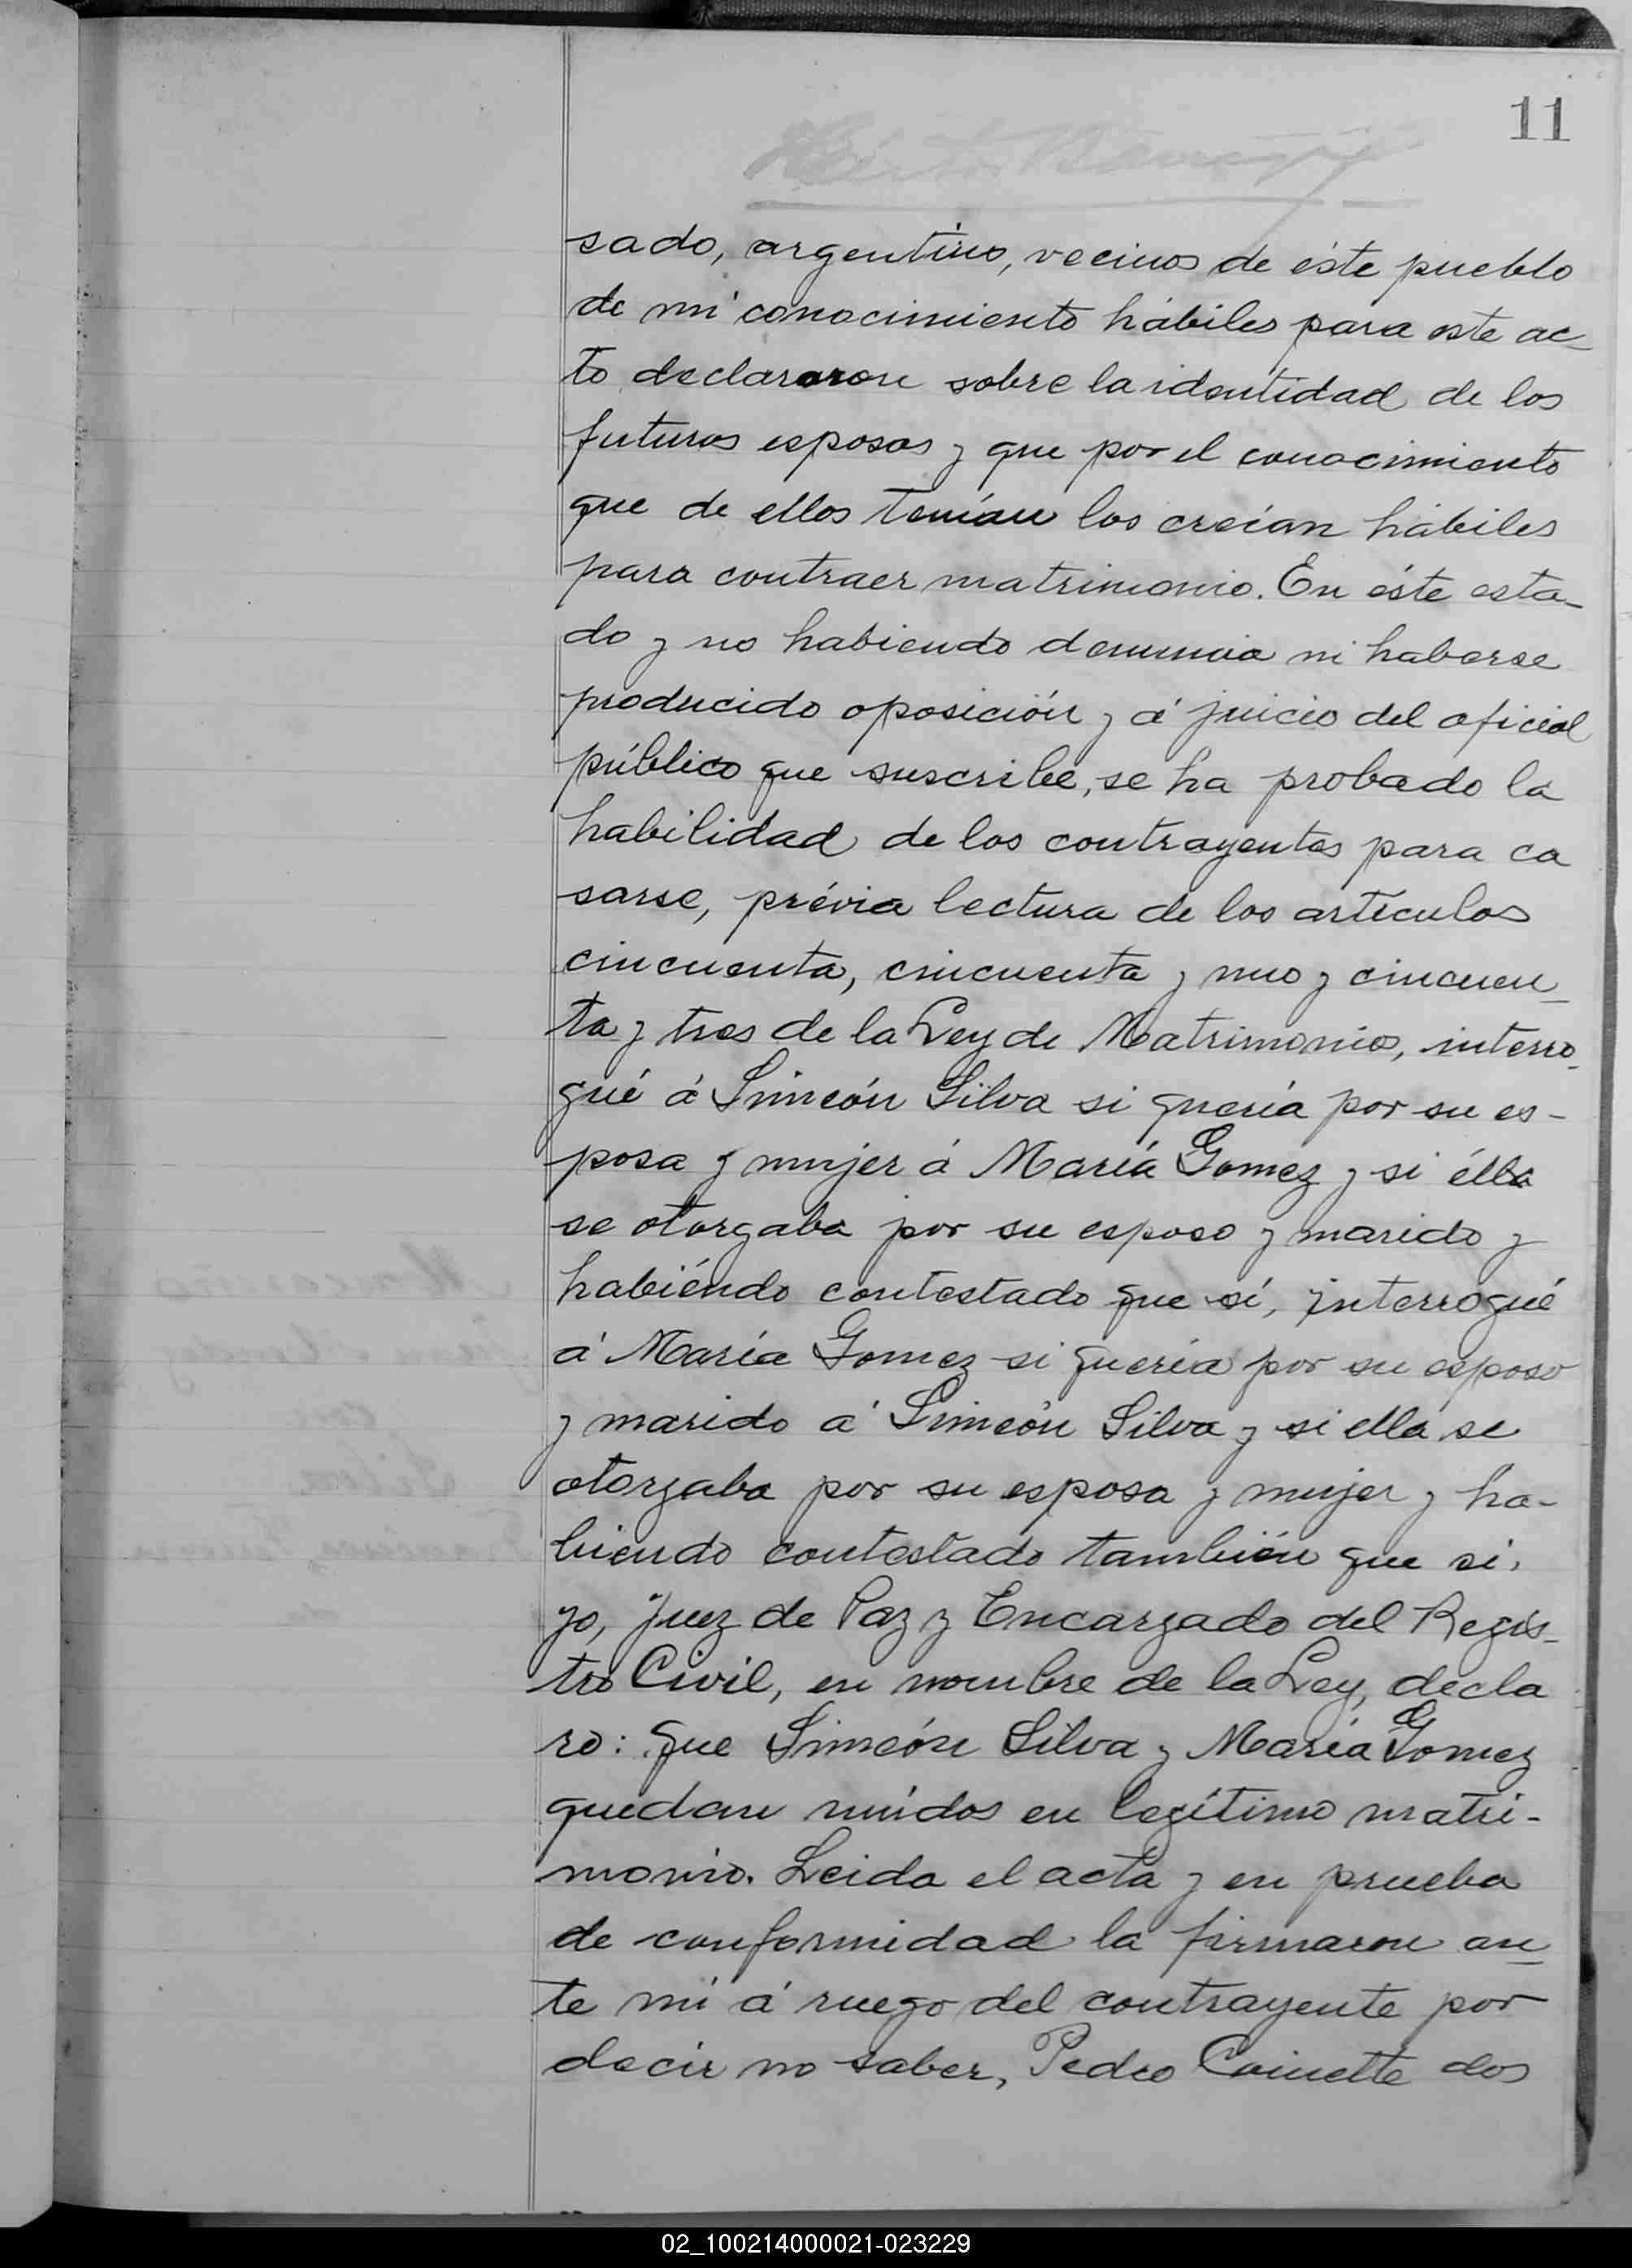 11
sado, argentino, vecinos de éste pueblo
de mi conocimiento hábiles para este ac_
to declararon sobre la identidad de los
futuros esposos y que por el conocimiento
que de ellos tenían los creían hábiles
para contraer matrimonio. En éste esta_
do y no habiendo denuncia ni haberse
producido oposición y á juicio del oficial
público que suscribe, se ha probado la
habilidad de los contrayentes para ca
sarse, prévia lectura de los artículos
cincuenta, cincuenta y uno y cincuen_
ta y tres de la Ley de Matrimonio, interro_
gué á Simeón Silva si quería por su es-
posa y mujer á María Gomez y si élla
se otorgaba por su esposo y marido y
habiéndo contestado que sí, interrogué
á María Gomez si quería por su esposo
y marido á Simeón Silva y si ella se
otorgaba por su esposa y mujer y ha-
biendo contestado también que si,
yo, Juez de Paz y Encargado del Regis_
tro Civil, en nombre de la Ley, decla
ro: que Simeón Silva y María Gomez
quedan unidos en legítimo matri-
monio. Leida el acta y en prueba
de conformidad la firmaron an_
te mí á ruego del contrayente por
decir no saber, Pedro dos
02_100214000021-023229